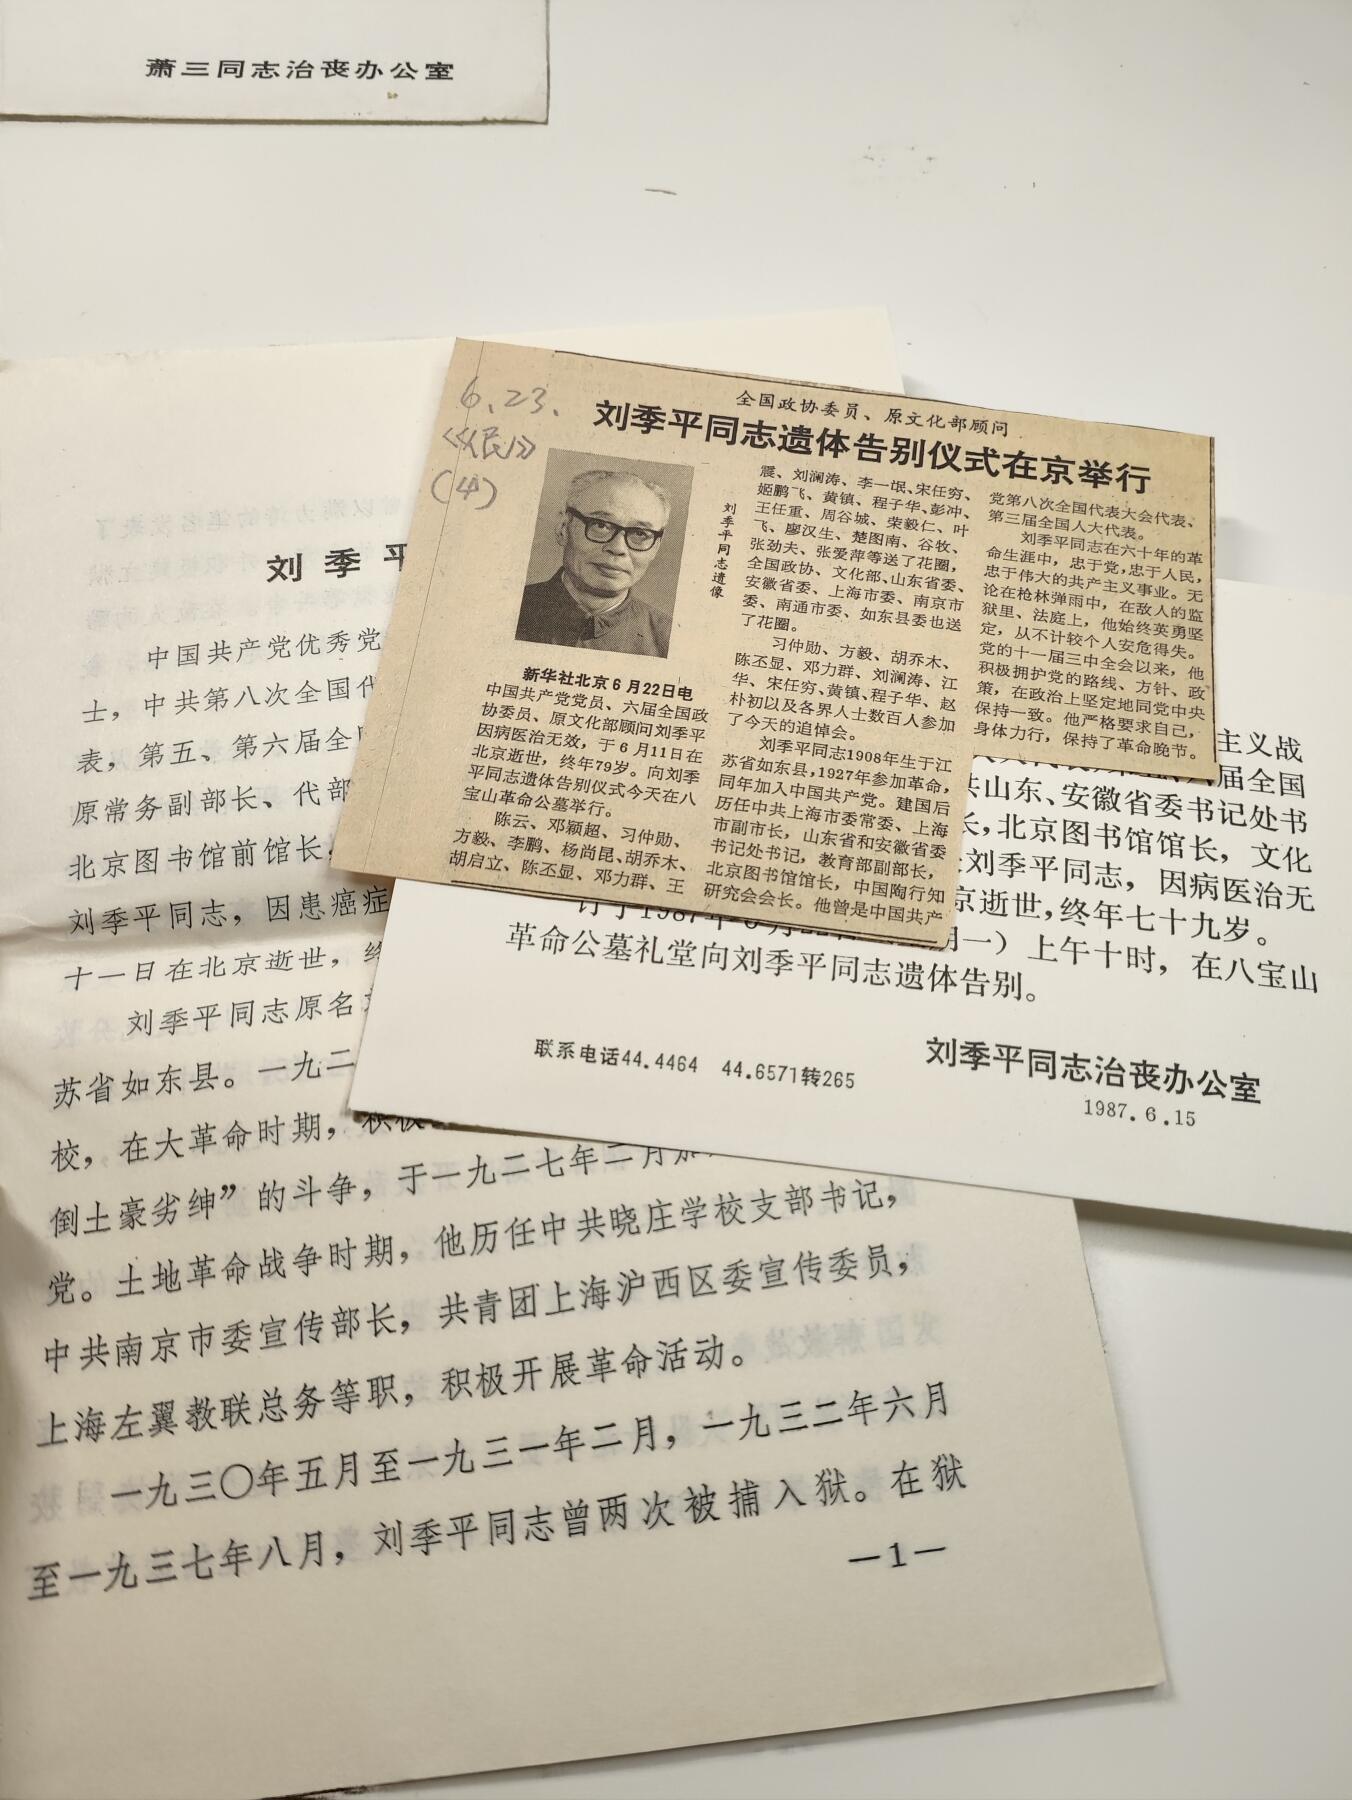 萧三同志治丧办公室
6.23.
《人民》
(4)
全国政协委员、原文化部顾问
刘季平同志遗体告别仪式在京举行
刘季平同志遗像
新华社北京6月22日电
中国共产党党员、六届全国政
协委员、原文化部顾问刘季平
因病医治无效，于6月11日在
北京逝世，终年79岁。向刘季
平同志遗体告别仪式今天在八
宝山革命公墓举行。
陈云、邓颖超、习仲勋、
方毅、李鹏、杨尚昆、胡乔木、
胡启立、陈丕显、邓力群、王
震、刘澜涛、李一氓、宋任穷、
姬鹏飞、黄镇、程子华、彭冲、
王任重、周谷城、荣毅仁、叶
飞、廖汉生、楚图南、谷牧、
张劲夫、张爱萍等送了花圈，
全国政协、文化部、山东省委、
安徽省委、上海市委、南京市
委、南通市委、如东县委也送
了花圈。
习仲勋、方毅、胡乔木、
陈丕显、邓力群、刘澜涛、江
华、宋任穷、黄镇、程子华、赵
朴初以及各界人士数百人参加
了今天的追悼会。
刘季平同志1908年生于江
苏省如东县，1927年参加革命，
同年加入中国共产党。建国后
历任中共上海市委常委、上海
市副市长，山东省和安徽省委
书记处书记，教育部副部长，
北京图书馆馆长，中国陶行知
研究会会长。他曾是中国共产
党第八次全国代表大会代表、
第三届全国人大代表。
刘季平同志在六十年的革
命生涯中，忠于党，忠于人民，
忠于伟大的共产主义事业。无
论在枪林弹雨中，在敌人的监
狱里、法庭上，他始终英勇坚
定，从不计较个人安危得失。
党的十一届三中全会以来，他
积极拥护党的路线、方针、政
策，在政治上坚定地同党中央
保持一致。他严格要求自己，
身体力行，保持了革命晚节。
主义战
届全国
山东、安徽省委书记处书
长，北京图书馆馆长，文化
刘季平同志，因病医治无
京逝世，终年七十九岁。
订于1987年6月
一）上午十时，在八宝山
革命公墓礼堂向刘季平同志遗体告别。
联系电话44.4464 44.6571转265
刘季平同志治丧办公室
1987.6.15
刘季平
中国共产党优秀党
士，中共第八次全国代
表，第五、第六届全
原常务副部长、代部
北京图书馆前馆长，
刘季平同志，因患癌症
十一日在北京逝世，终
刘季平同志原名
苏省如东县。一九二
校，在大革命时期，积极
倒土豪劣绅”的斗争，于一九二七年二月加
党。土地革命战争时期，他历任中共晓庄学校支部书记，
中共南京市委宣传部长，共青团上海沪西区委宣传委员，
上海左翼教联总务等职，积极开展革命活动。
一九三〇年五月至一九三一年二月，一九三二年六月
至一九三七年八月，刘季平同志曾两次被捕入狱。在狱
—1—